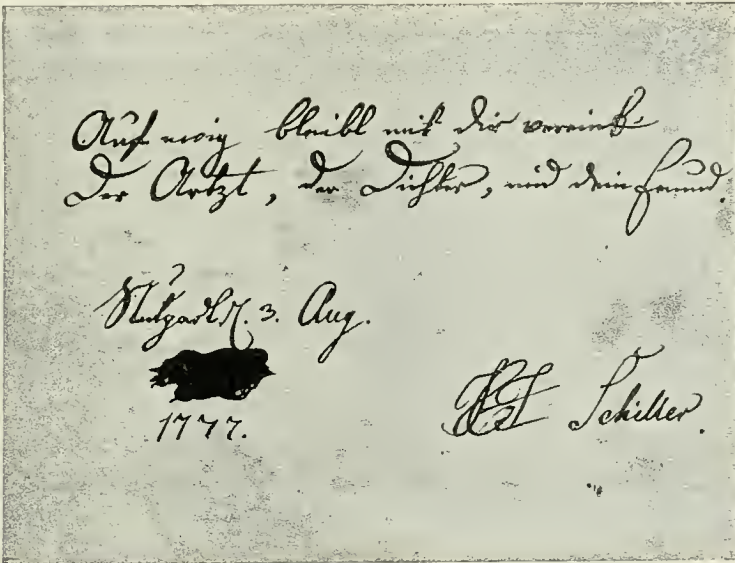 Auf ewig bleibt mit dir vereint
Der Artzt, der Dichter, und dein Freund.
Stutgart d. 3. Aug.
1777.
Schiller.